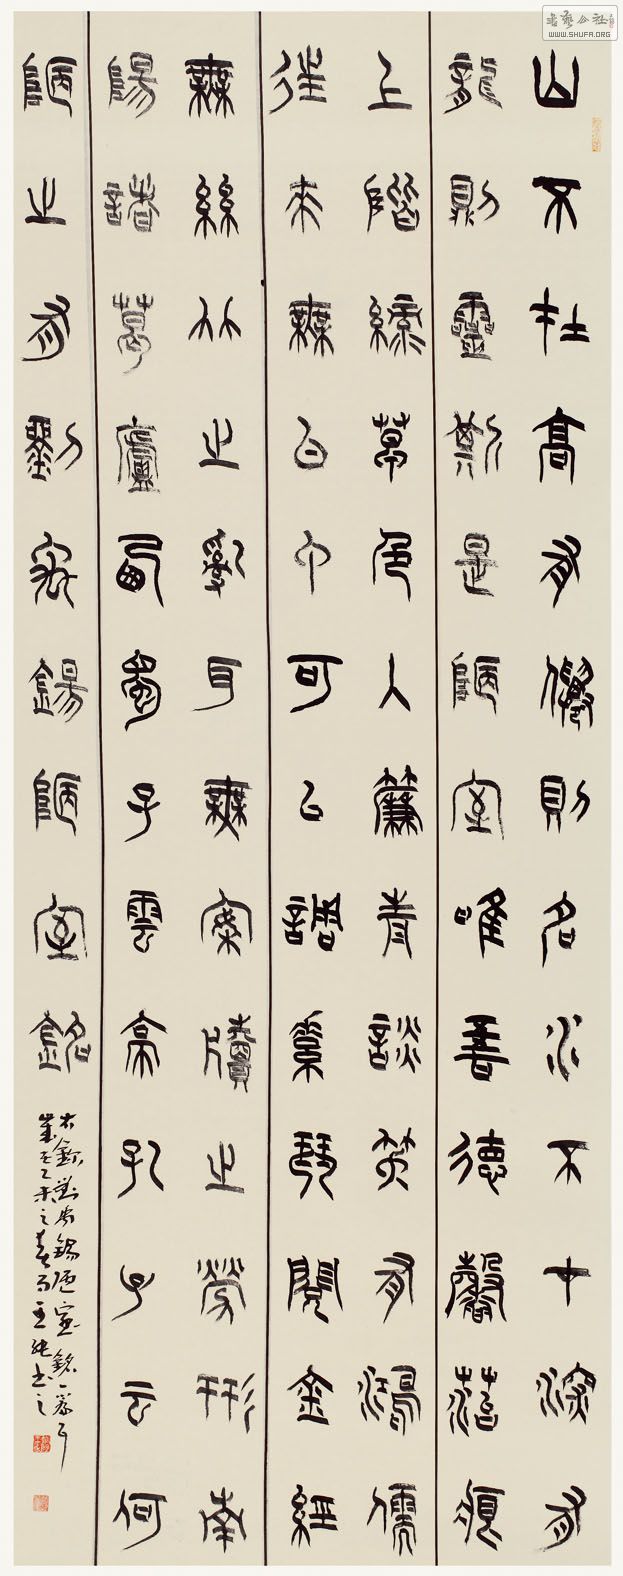 山不在高有僊則名水不在深有
龍則靈斯是陋室唯吾德馨苔痕
上階綠草色入簾青談笑有鴻儒
往來無白丁可以調素琴閱金經
無絲竹之亂耳無案牘之勞形南
陽諸葛廬西蜀子雲亭孔子云何
陋之有劉禹錫陋室銘
右錄劉禹錫陋室銘一篇
乙未之春月王书之
书艺公社
WWW.SHUFA.ORG